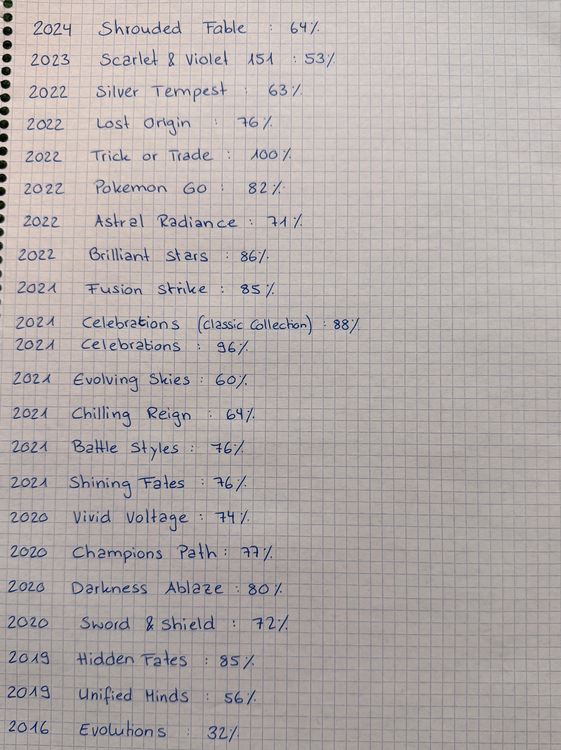 2024 Shrouded Fable : 64%
2023 Scarlet & Violet 151 : 53%
2022 Silver Tempest : 63%
2022 Lost Origin : 76%
2022 Trick or Trade : 100%
2022 Pokemon Go : 82%
2022 Astral Radiance : 71%
2022 Brilliant Stars : 86%
2021 Fusion Strike : 85%
2021 Celebrations (Classic Collection) : 88%
2021 Celebrations : 96%
2021 Evolving Skies : 60%
2021 Chilling Reign : 64%
2021 Battle Styles : 76%
2021 Shining Fates : 76%
2020 Vivid Voltage : 74%
2020 Champions Path : 77%
2020 Darkness Ablaze : 80%
2020 Sword & Shield : 72%
2019 Hidden Fates : 85%
2019 Unified Minds : 56%
2016 Evolutions : 32%